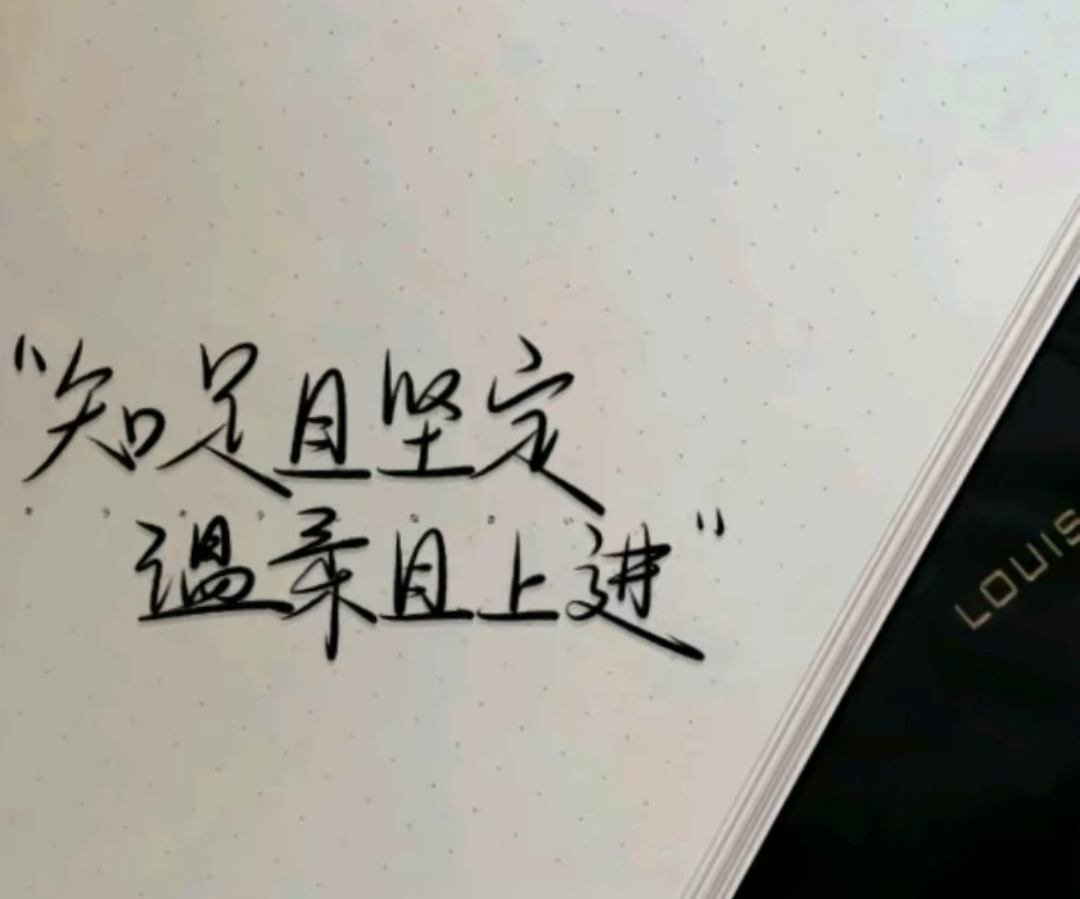 “知足且坚定
温柔且上进”
LOUIS